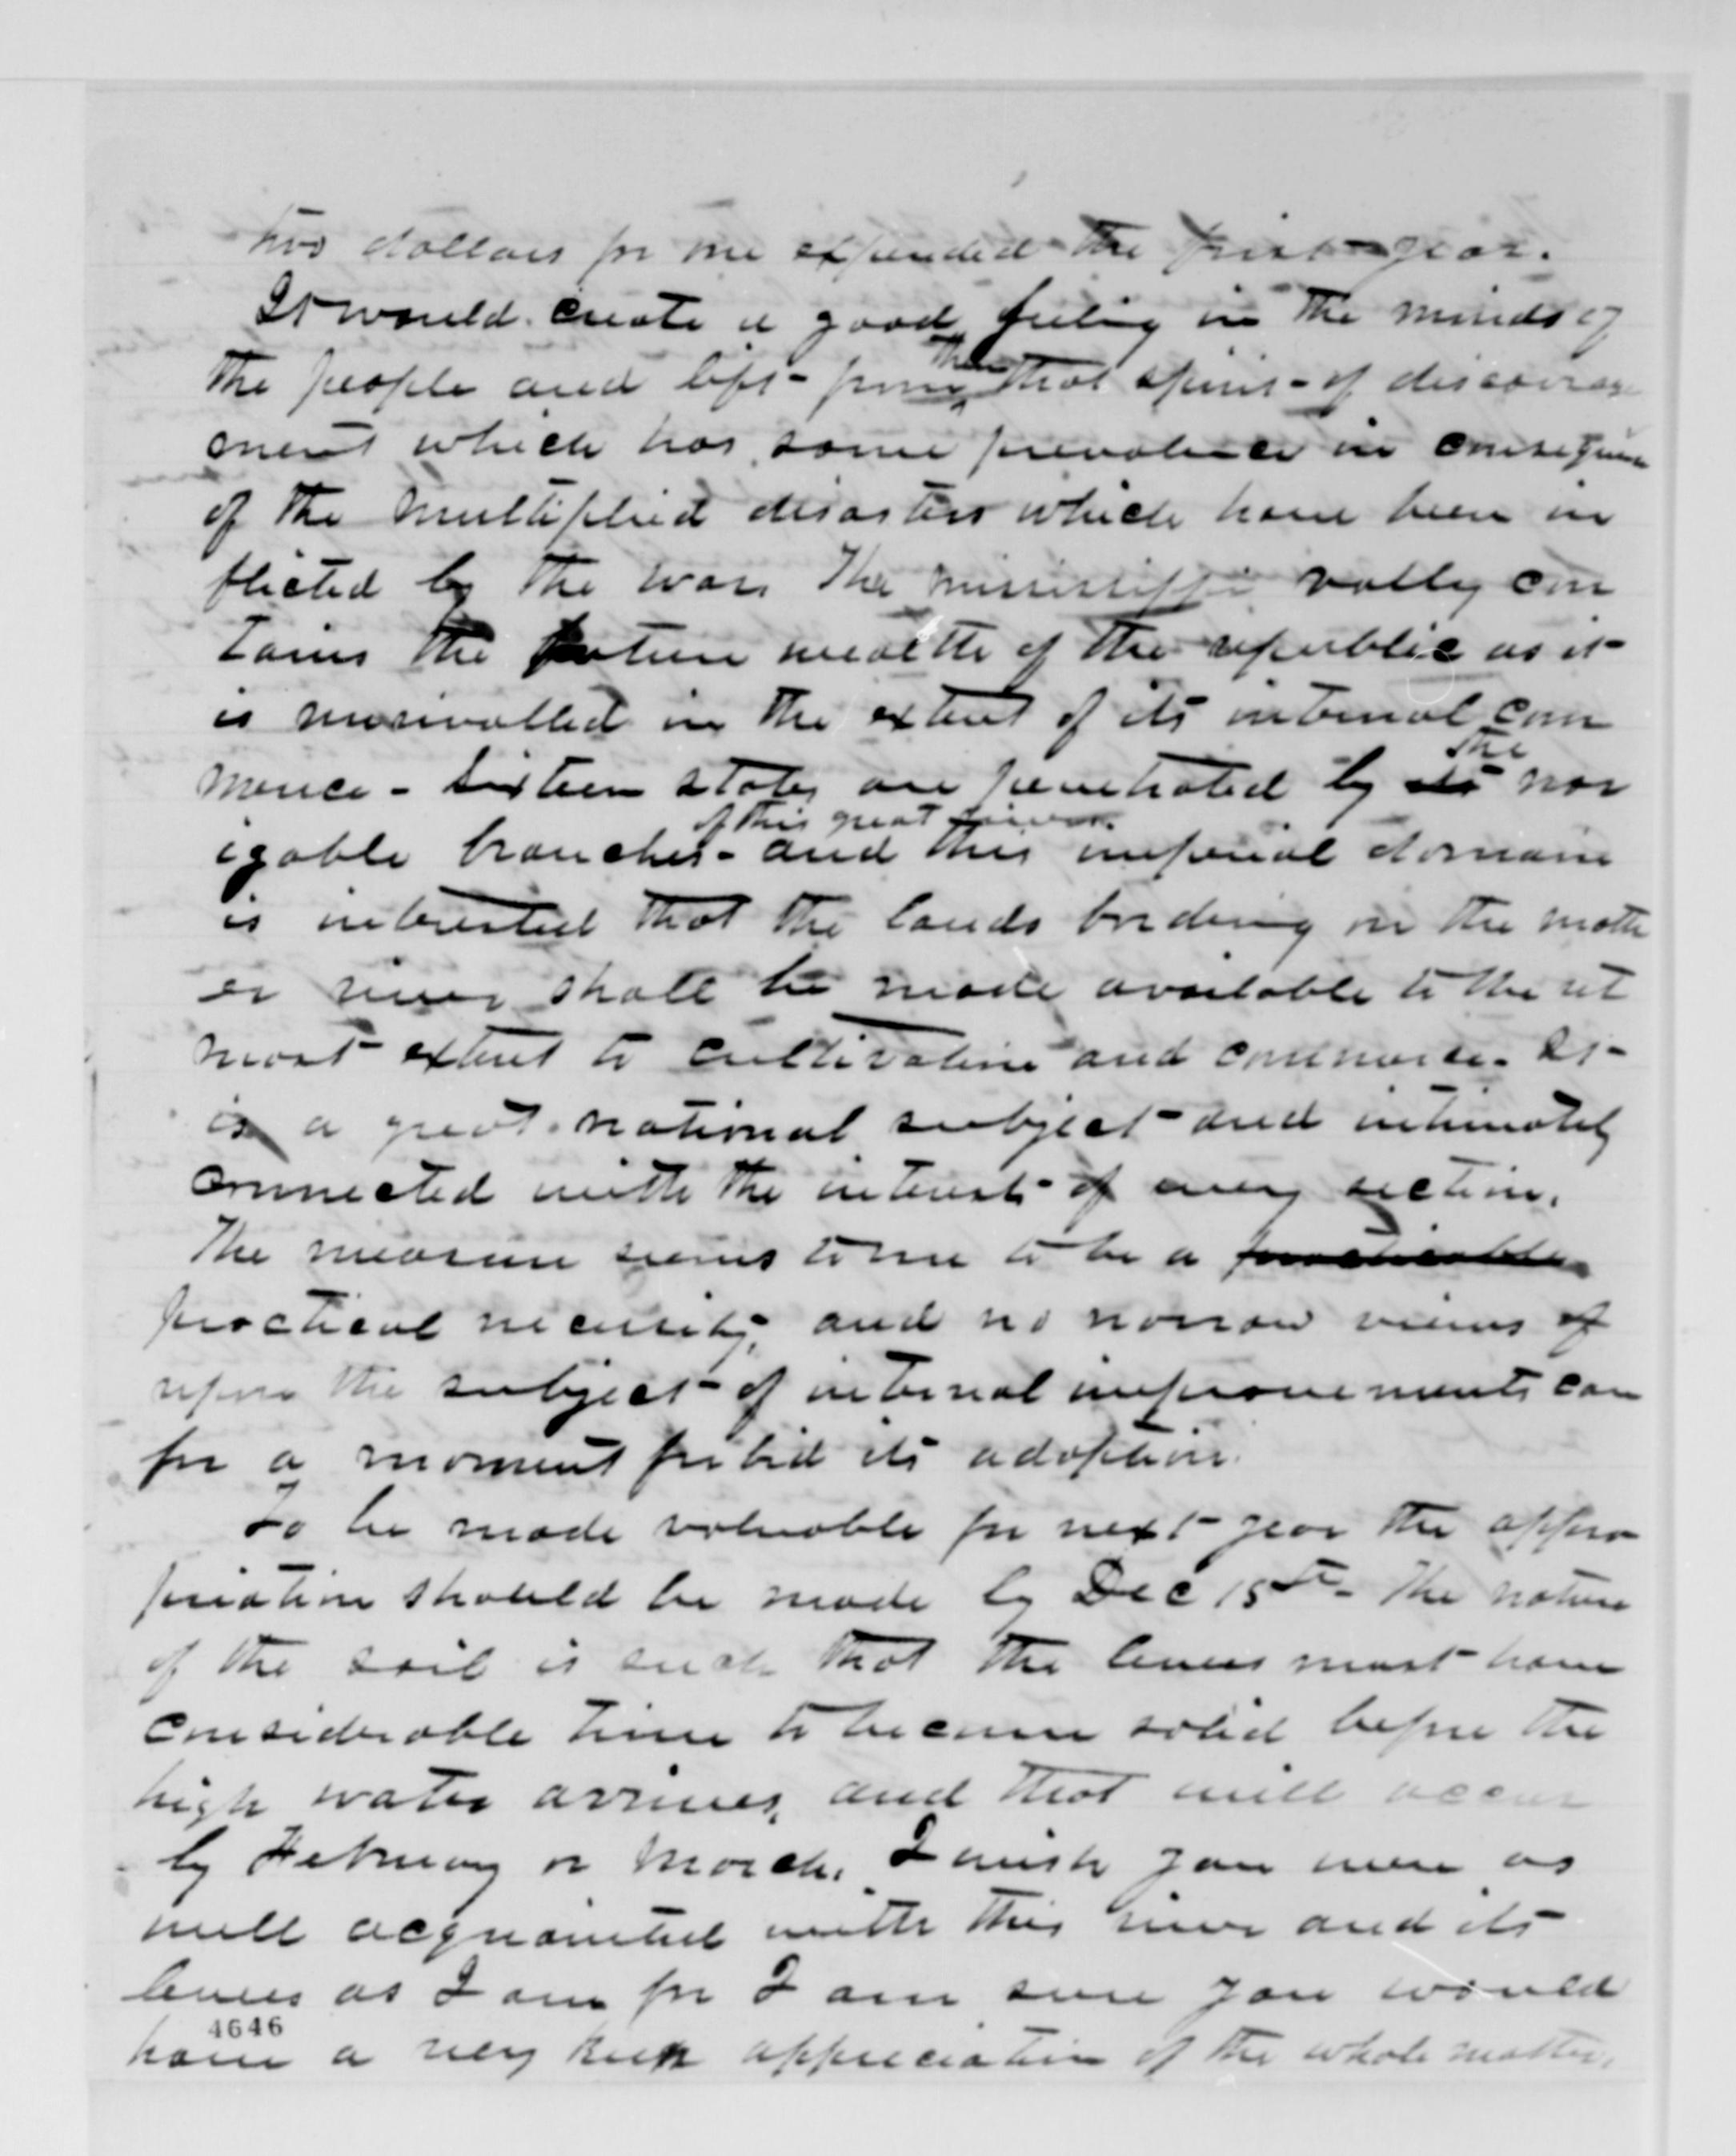 two dollars for one expended the first year.
It would create a good feeling in the minds of
the people and lift from them that spirit of discourage
ment which has some prevalence in consequence
of the multiplied disasters which have been in
flicted by the war. The Mississippi valley con
tains the future wealth of the republic as it
is unrivalled in the extent of its internal com
merce - sixteen states are penetrated by its the nav
igable branches of this great river - and this imperial domain
is interested that the lands bordering on the moth
er river shall be made available to the ut
most extent to cultivation and commerce. It
is a great national subject and intimately
connected with the interests of every section.
The measure seems to me to be a practicable
practical necessity, and no narrow views of
upon the subject of internal improvements can
for a moment forbid its adoption.
To be made valuable for next year the appro
priation should be made by Dec 15th - The nature
of the soil is such that the levees must have
considerable time to become solid before the
high water arrives, and that will occur
by February or March. I wish you were as
well acquainted with this river and its
levees as I am for I am sure you would
4646
have a very keen appreciation of the whole matter.